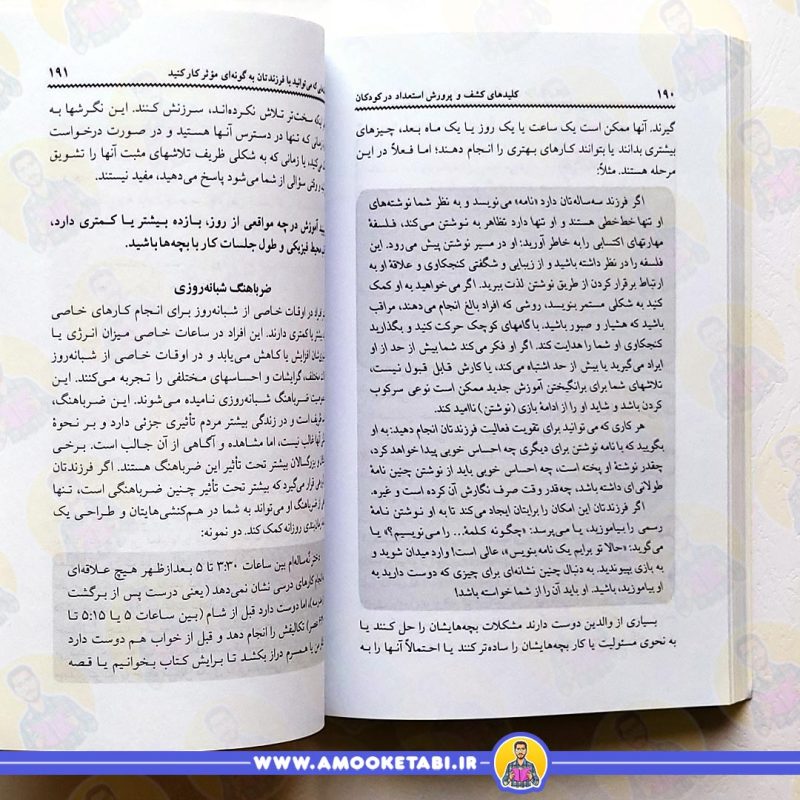 ۱۹۰
کلیدهای کشف و پرورش استعداد در کودکان
گیرند. آنها ممکن است یک ساعت یا یک روز یا یک ماه بعد، چیزهای
بیشتری بدانند یا بتوانند کارهای بهتری را انجام دهند؛ اما فعلاً در این
مرحله هستند. مثلاً:
اگر فرزند سه‌ساله‌تان دارد «نامه» می‌نویسد و به نظر شما نوشته‌های
او تنها خط‌خطی هستند و او تنها دارد تظاهر به نوشتن می‌کند، فلسفهٔ
مهارتهای اکتسابی را به خاطر آورید؛ او در مسیر نوشتن پیش می‌رود. این
فلسفه را در نظر داشته باشید و از زیبایی و شگفتی کنجکاوی و علاقهٔ او به
ارتباط برقرار کردن از طریق نوشتن لذت ببرید. اگر می‌خواهید به او کمک
کنید به شکلی مستمر بنویسد، روشی که افراد بالغ انجام می‌دهند، مراقب
باشید که هشیار و صبور باشید. با گامهای کوچک حرکت کنید و بگذارید
کنجکاوی او شما را هدایت کند. اگر او فکر می‌کند شما بیش از حد از او
ایراد می‌گیرید یا بیش از حد اشتباه می‌کند، یا کارش قابل قبول نیست،
تلاشهای شما برای برانگیختن آموزش جدید ممکن است نوعی سرکوب
کردن باشد و شاید او را از ادامهٔ بازی (نوشتن) ناامید کند.
هر کاری که می‌توانید برای تقویت فعالیت فرزندتان انجام دهید: به او
بگویید که با نامه نوشتن برای دیگری چه احساس خوبی پیدا خواهد کرد،
چقدر نوشتهٔ او پخته است، چه احساس خوبی باید از نوشتن چنین نامهٔ
طولانی‌ای داشته باشد، چه‌قدر وقت صرف نگارش آن کرده است و غیره.
اگر فرزندتان این امکان را برایتان ایجاد می‌کند تا به او نوشتن نامهٔ
رسمی را بیاموزید، یا می‌پرسد: «چگونه کلمهٔ... را می‌نویسیم؟» یا
می‌گوید: «حالا تو برایم یک نامه بنویس»، عالی است! وارد میدان شوید و
به بازی بپیوندید. به دنبال چنین نشانه‌ای برای چیزی که دوست دارید به
او بیاموزید، باشید. او باید آن را از شما خواسته باشد!
بسیاری از والدین دوست دارند مشکلات بچه‌هایشان را حل کنند یا
به نحوی مسئولیت یا کار بچه‌هایشان را ساده‌تر کنند یا احتمالاً آنها را به
که می‌توانید با فرزندتان به گونه‌ای مؤثر کار کنید
۱۹۱
اینکه سخت‌تر تلاش نکرده‌اند، سرزنش کنند. این نگرشها به
زمانی که تنها در دسترس آنها هستید و در صورت درخواست
می‌کنید، یا زمانی که به شکلی ظریف تلاشهای مثبت آنها را تشویق
روشی سؤالی از شما می‌شود پاسخ می‌دهید، مفید نیستند.
آموزش در چه مواقعی از روز، بازده بیشتر یا کمتری دارد،
محیط فیزیکی و طول جلسات کار با بچه‌ها باشید.
ضرباهنگ شبانه‌روزی
در اوقات خاصی از شبانه‌روز برای انجام کارهای خاصی
بیشتر یا کمتری دارند. این افراد در ساعات خاصی میزان انرژی یا
افزایش یا کاهش می‌یابد و در اوقات خاصی از شبانه‌روز
مختلف، گرایشات و احساسهای مختلفی را تجربه می‌کنند. این
ضرباهنگ شبانه‌روزی نامیده می‌شوند. این ضرباهنگ،
ظریف است و در زندگی بیشتر مردم تأثیری جزئی دارد و بر نحوهٔ
آنها غالب نیست، اما مشاهده و آگاهی از آن جالب است. برخی
و بزرگسالان بیشتر تحت تأثیر این ضرباهنگ هستند. اگر فرزندتان
قرار می‌گیرد که بیشتر تحت تأثیر چنین ضرباهنگی است، تنها
از ضرباهنگ او می‌تواند به شما در هم‌کنشی‌هایتان و طراحی یک
روزانه کمک کند. دو نمونه:
دختر نه‌ساله‌ام بین ساعات ۳:۳۰ تا ۵ بعدازظهر هیچ علاقه‌ای
انجام کارهای درسی نشان نمی‌دهد (یعنی درست پس از برگشت
مدرسه)، اما دوست دارد قبل از شام (بین ساعات ۵ یا ۵:۱۵ تا
عصر) تکالیفش را انجام دهد و قبل از خواب هم دوست دارد
من یا همسرم دراز بکشد تا برایش کتاب بخوانیم یا قصه
WWW.AMOOKETABI.IR